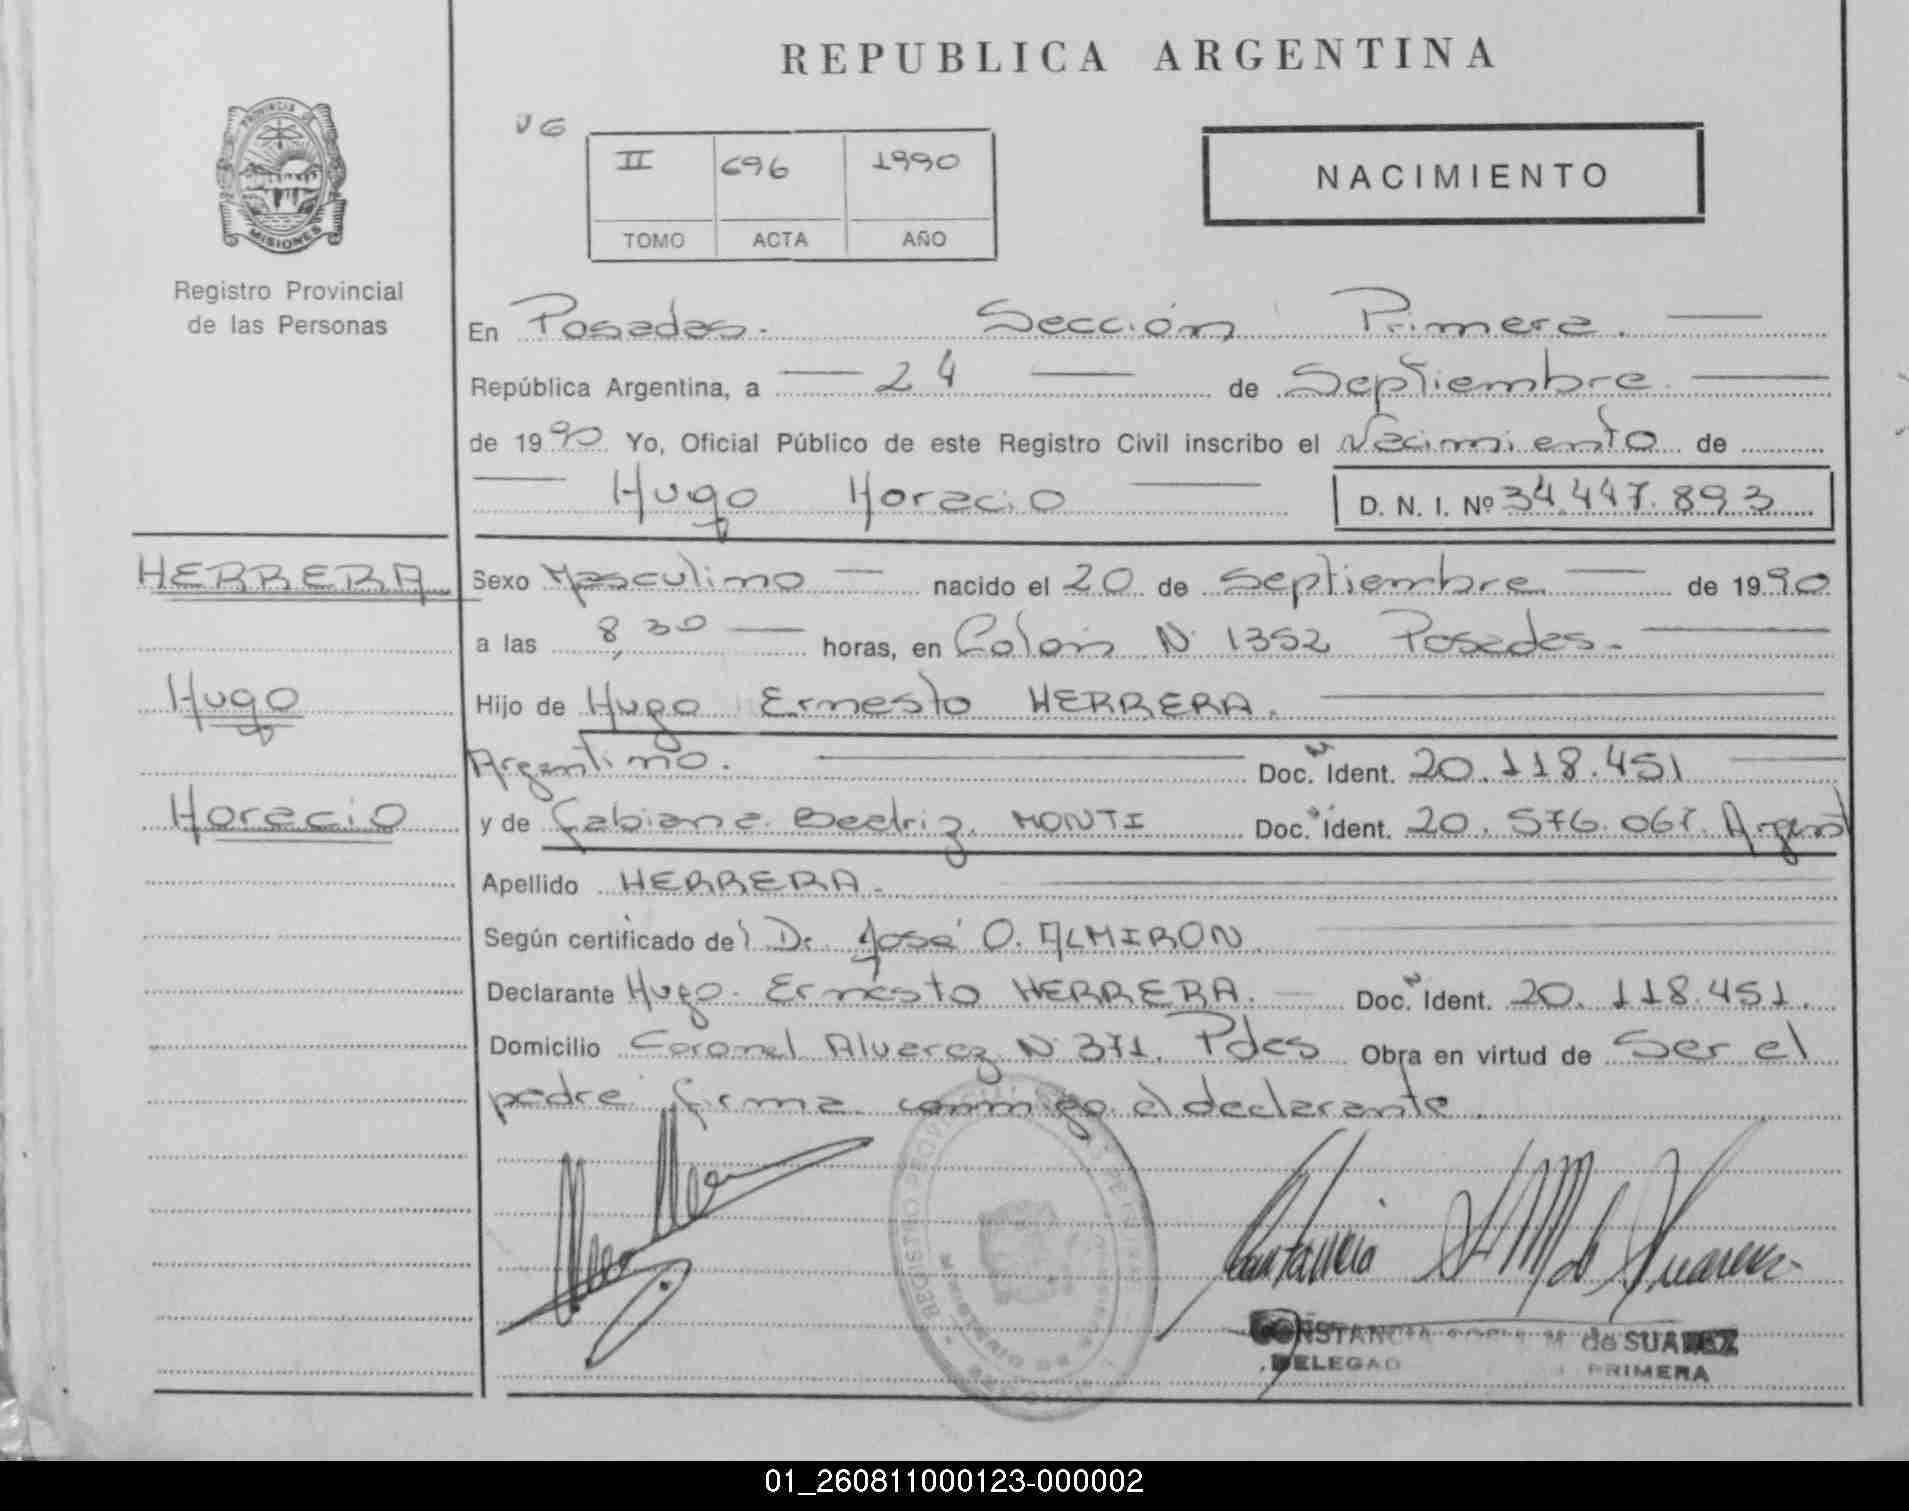 REPUBLICA ARGENTINA
PROVINCIA DE
MISIONES
Registro Provincial
de las Personas
VG
II 696 1990
TOMO ACTA AÑO
NACIMIENTO
En Posadas. Sección Primera.
República Argentina, a 24 de Septiembre.
de 1990 Yo, Oficial Público de este Registro Civil inscribo el Nacimiento de
Hugo Horacio D. N. I. Nº 34.447.893
HERRERA
Hugo
Horacio
Sexo Masculino nacido el 20 de Septiembre de 1990
a las 8,30 horas, en Colon N 1352 Posadas.
Hijo de Hugo Ernesto HERRERA.
Argentino. Doc. Ident. 20.118.451
y de Fabiana Beatriz MONTI Doc. Ident. 20.576.067. Argent
Apellido HERRERA
Según certificado del Dr. José O. ALMIRON
Declarante Hugo Ernesto HERRERA. Doc. Ident. 20.118.451.
Domicilio Coronel Alvarez N 371. Pdas Obra en virtud de Ser el
padre firma conmigo el declarante.
REGISTRO PROVINCIAL DE LAS PERSONAS
MINISTERIO DE
MISIONES
Constancia M de Suarez
CONSTANCIA M de SUAREZ
DELEGAD PRIMERA
01_260811000123-000002